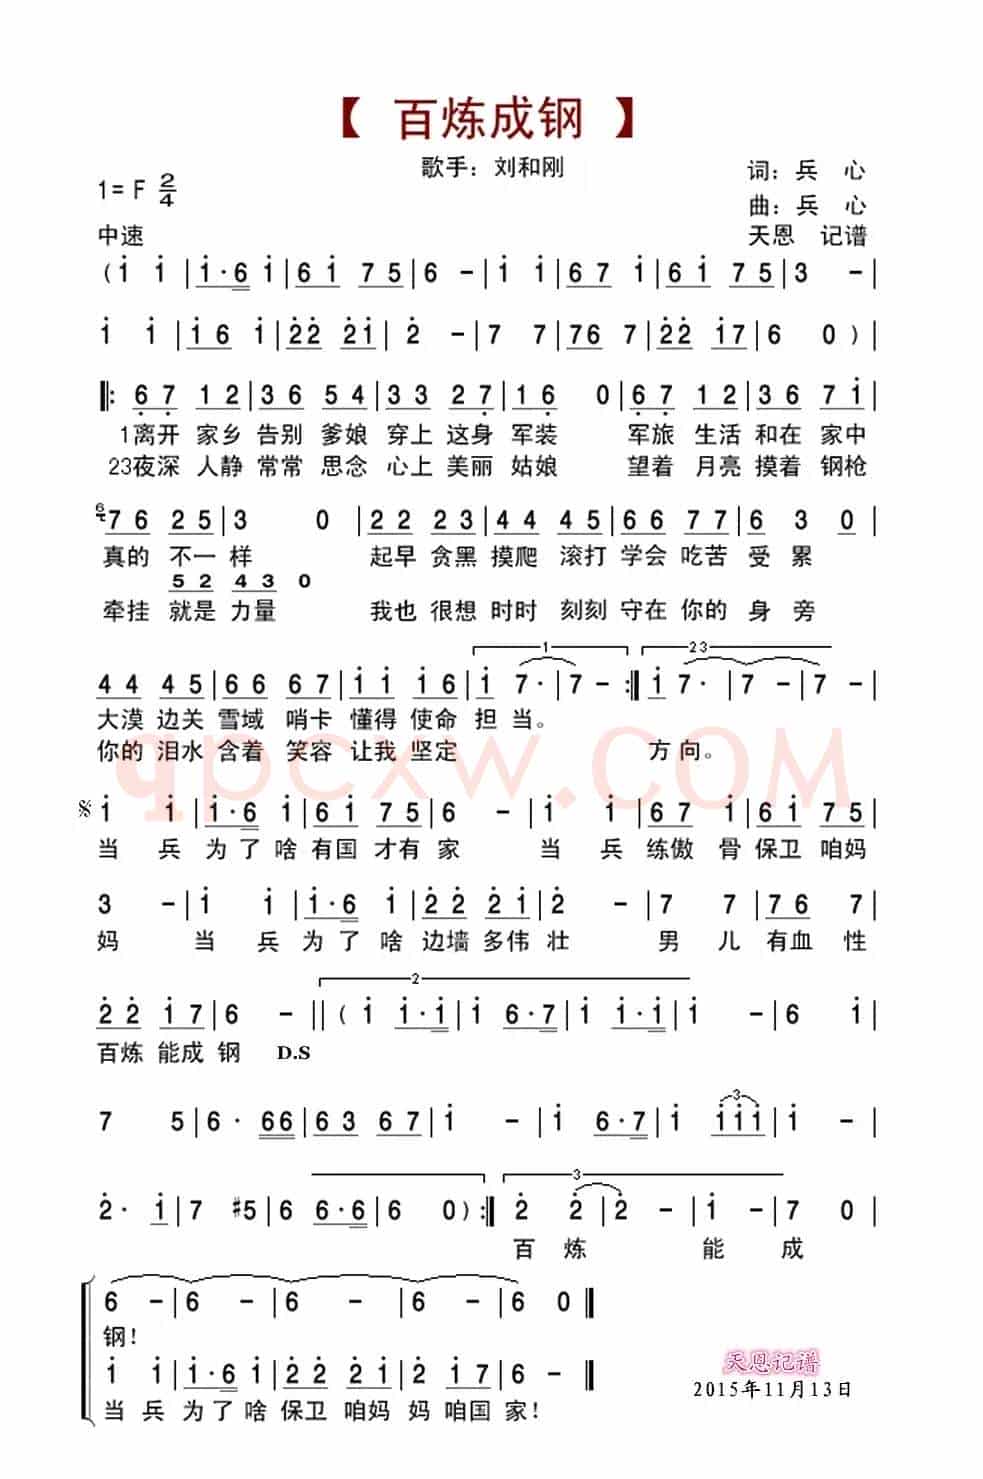 【 百炼成钢 】
歌手：刘和刚
词：兵 心
1=F 2/4
曲：兵 心
中速
天恩 记谱
(i i | i·6 i | 6i 75 | 6 - | i i | 67 i | 6i 75 | 3 - |
i i | i6 i | 22 2i | 2 - | 7 7 | 76 7 | 22 i7 | 6 0 ) |
‖: 67 12 | 36 54 | 33 27 | 16 0 | 67 12 | 36 7i |
1离开 家乡 告别 爹娘 穿上 这身 军装 军旅 生活 和在 家中
23夜深 人静 常常 思念 心上 美丽 姑娘 望着 月亮 摸着 钢枪
6 76 25 | 3 0 | 22 23 | 44 45 | 66 77 | 6 3 0 |
真的 不一 样 起早 贪黑 摸爬 滚打 学会 吃苦 受 累
52 43 0
牵挂 就是 力量 我也 很想 时时 刻刻 守在 你的 身 旁
1 23
44 45 | 66 67 | ii i6 | i 7· | 7 - :‖ i 7· | 7 - | 7 - |
大漠 边关 雪域 哨卡 懂得 使命 担 当。
你的 泪水 含着 笑容 让我 坚定 方 向。
qpcxw.com
𝄋 i i | i·6 i | 6i 75 | 6 - | i i | 67 i | 6i 75 |
当 兵 为了 啥 有国 才有 家 当 兵 练傲 骨 保卫 咱妈
3 - | i i | i·6 i | 22 2i | 2 - | 7 7 | 76 7 |
妈 当 兵 为了 啥 边墙 多伟 壮 男 儿 有血 性
2
22 i7 | 6 - ‖ ( i i·i | i 6·7 | i i·i | i - | 6 i |
百炼 能成 钢 D.S
3
7 5 | 6· 66 | 63 67 | i - | i 6·7 | i iii | i - |
3
2· i | 7 #5 | 6 6·6 | 6 0 ) :‖ 2 2 | 2 - | i - | 7 0 |
百 炼 能 成
6 - | 6 - | 6 - | 6 - | 6 0 ‖
钢！
i i | i·6 i | 22 22 | 2i 7 | 67 5 | 6 0 ‖
当 兵 为了 啥 保卫 咱妈 妈 咱国 家！
天恩记谱
2015年11月13日